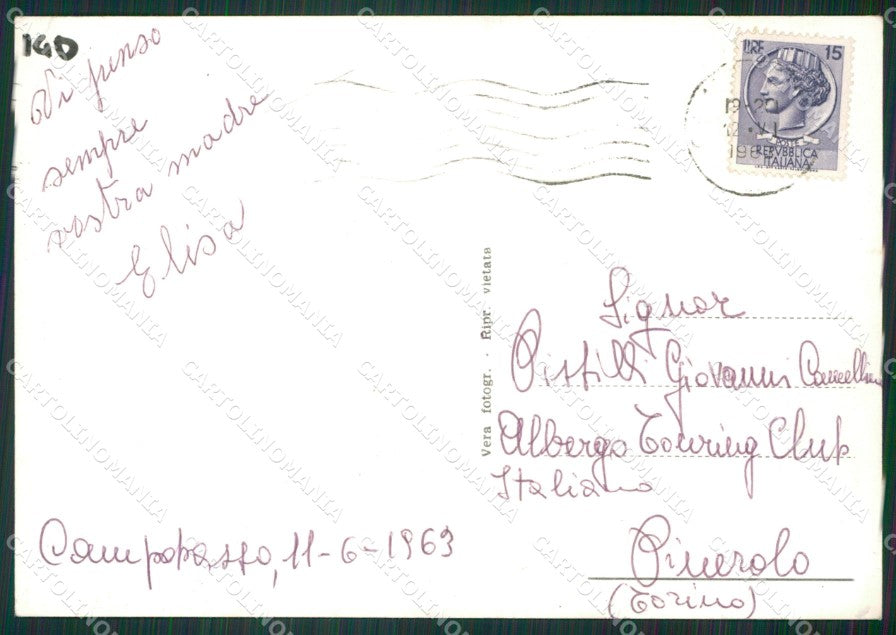 IGD
Vi penso
sempre
vostra madre
Elisa
Campobasso, 11-6-1963
Vera fotogr. · Ripr. vietata
LIRE 15
POSTE
REPVBBLICA
ITALIANA
19-20
12·VI
196
Signor
Pistilli Giovanni
Albergo Touring Club
Italiano
Pinerolo
(Torino)
CARTOLINOMANIA